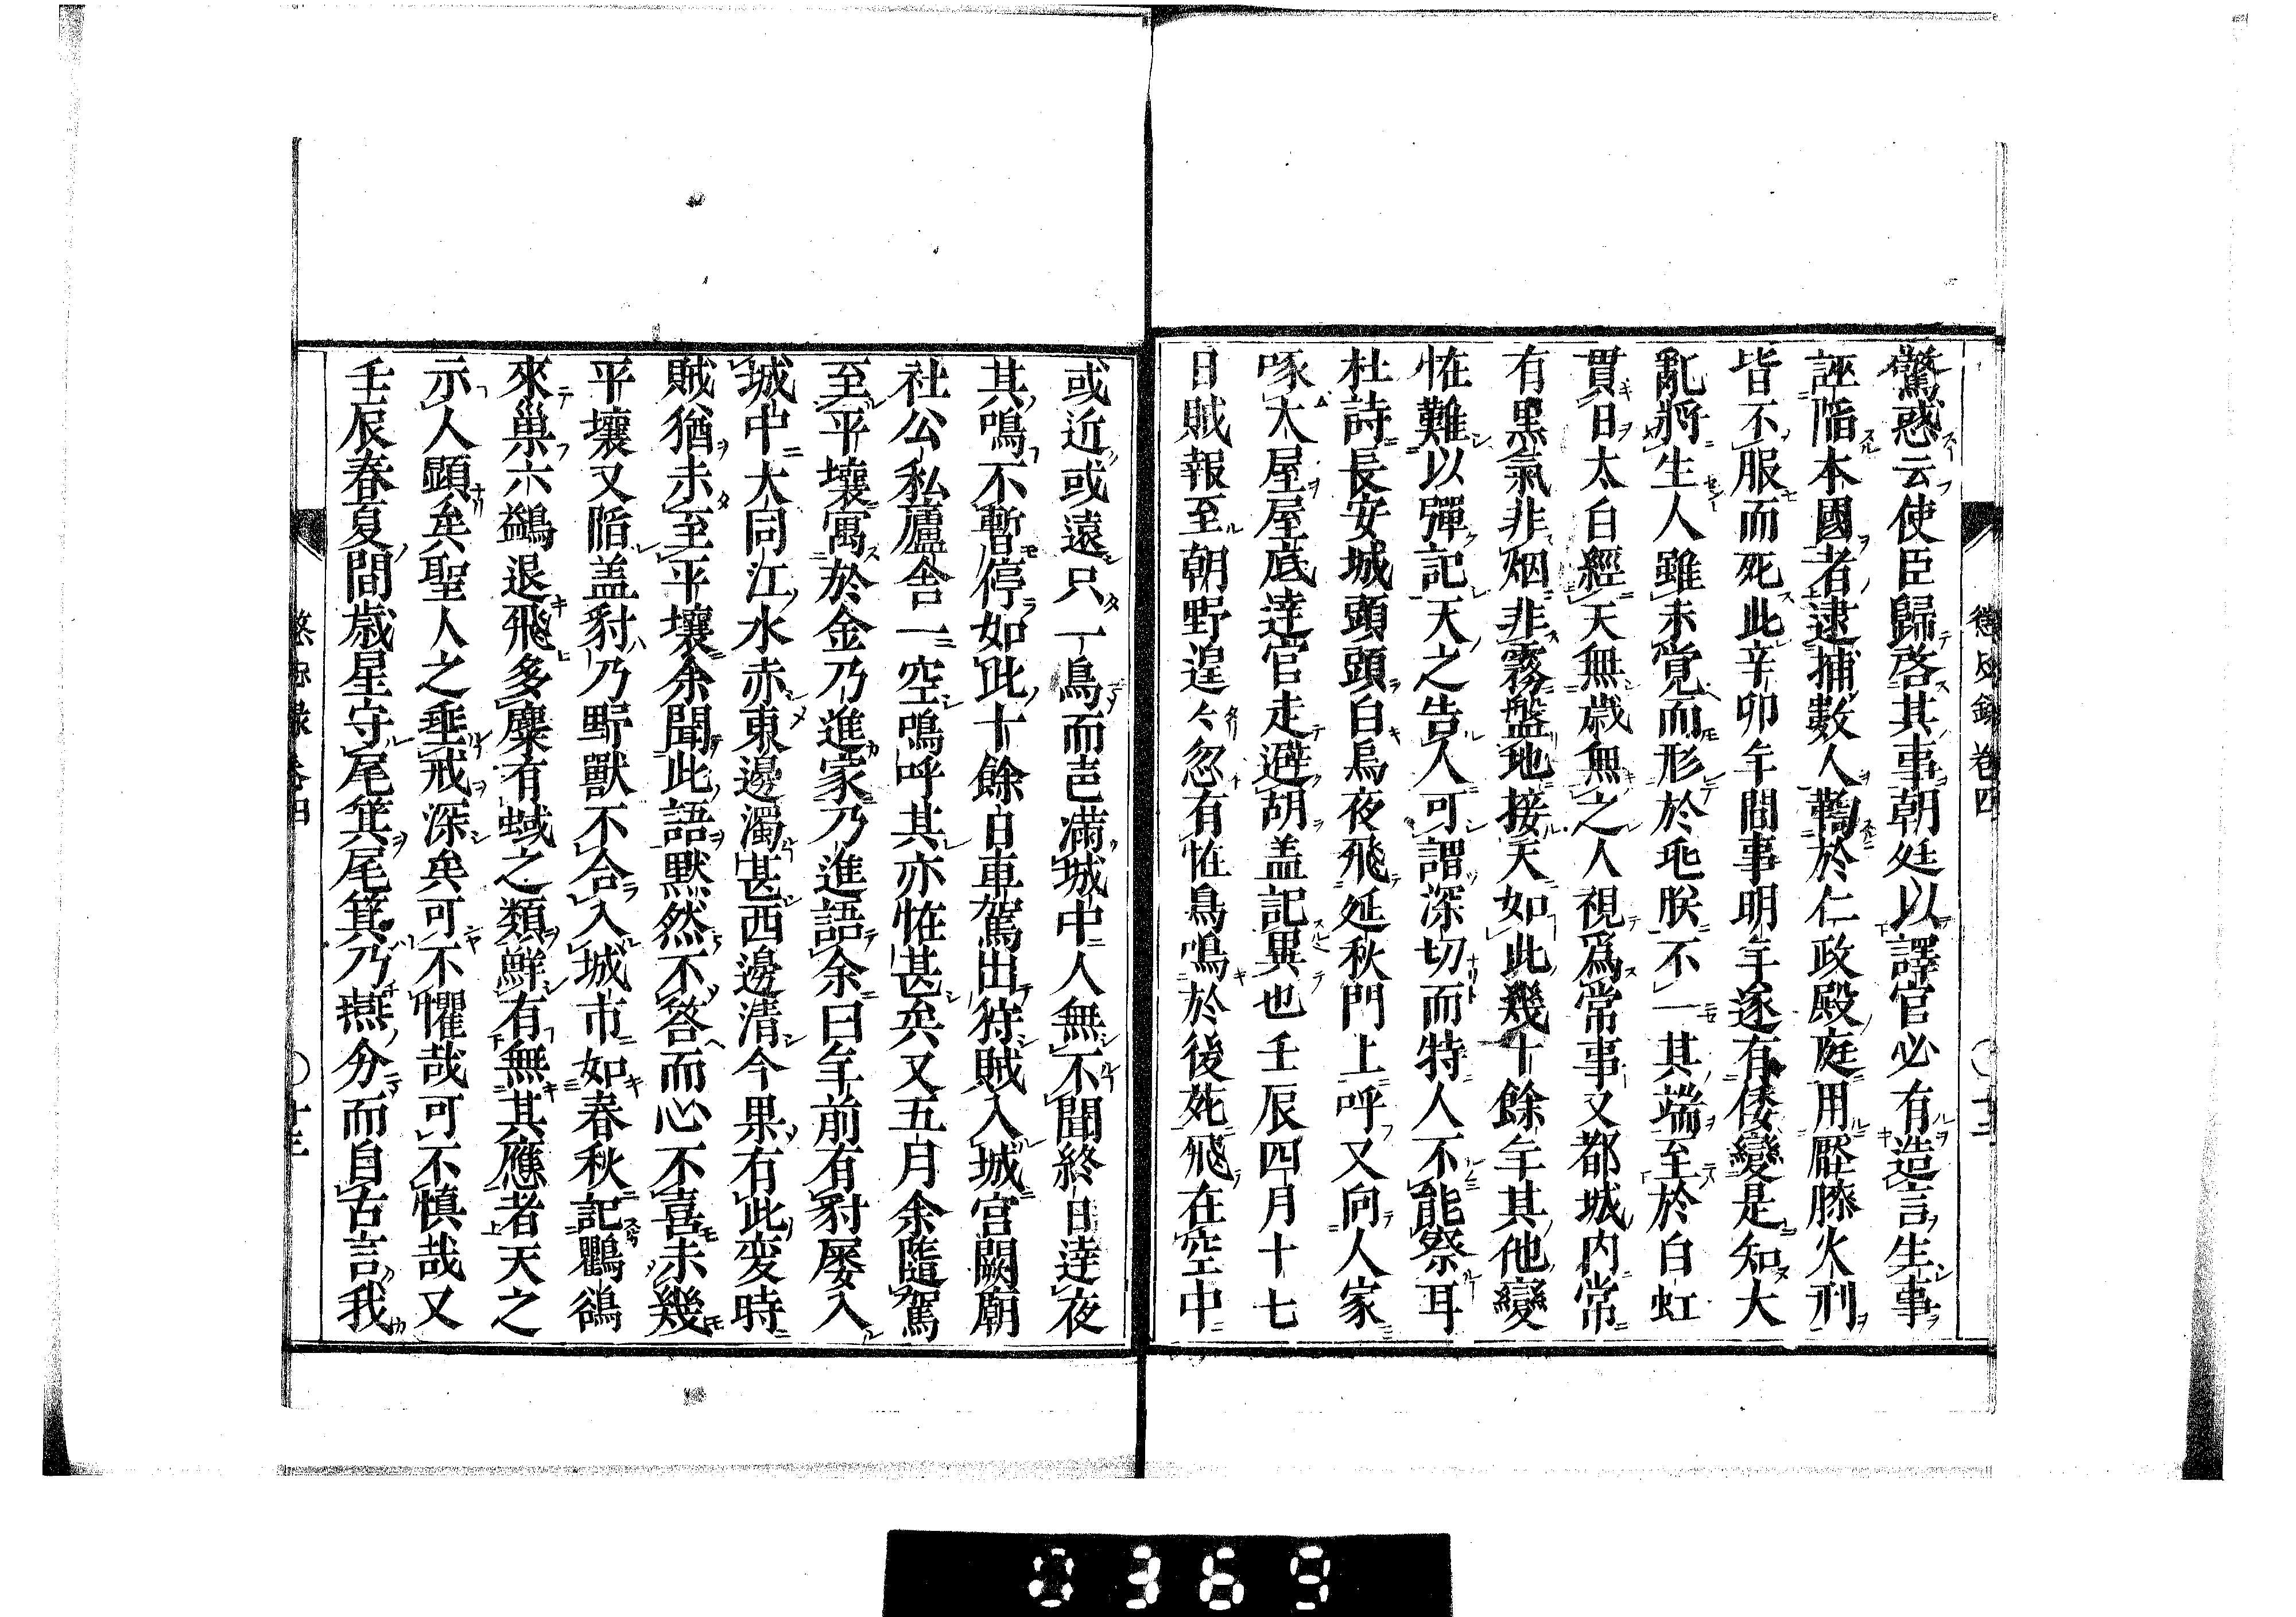 懲毖録 卷四 〇 十三
驚惑云使臣歸啓其事朝廷以譯官必有造言生事
誣陷本國者逮捕數人鞫於仁政殿庭用壓膝火刑
皆不服而死此辛卯年間事明年遂有倭變是知大
亂將生人雖未覚而形於兆朕不一其端至於白虹
貫日太白經天無歲無之人視爲常事又都城内常
有黒氣非烟非霧盤地接天如此幾十餘年其他變
恠難以殫記天之告人可謂深切而特人不能察耳
杜詩長安城頭頭白烏夜飛延秋門上呼又向人家
啄大屋屋底達官走避胡盖記異也壬辰四月十七
日賊報至朝野遑々忽有恠鳥鳴於後苑飛在空中
或近或遠只一鳥而声滿城中人無不聞終日達夜
其鳴不暫停如此十餘日車駕出狩賊入城宮闕廟
社公私廬舎一空鳴呼其亦恠甚矣又五月余隨駕
至平壤寓於金乃進家乃進語余曰年前有豺屡入
城中大同江水赤東邊濁甚西邊清今果有此変時
賊猶未至平壤余聞此語默然不答而心不喜未幾
平壤又陷盖豺乃野獸不合入城市如春秋記鸜鵒
來巢六鷁退飛多麋有蜮之類鮮有無其應者天之
示人顕矣聖人之垂戒深矣可不懼哉可不慎哉又
壬辰春夏間歳星守尾箕尾箕乃燕分而自古言我
懲毖録 卷四 〇 十三